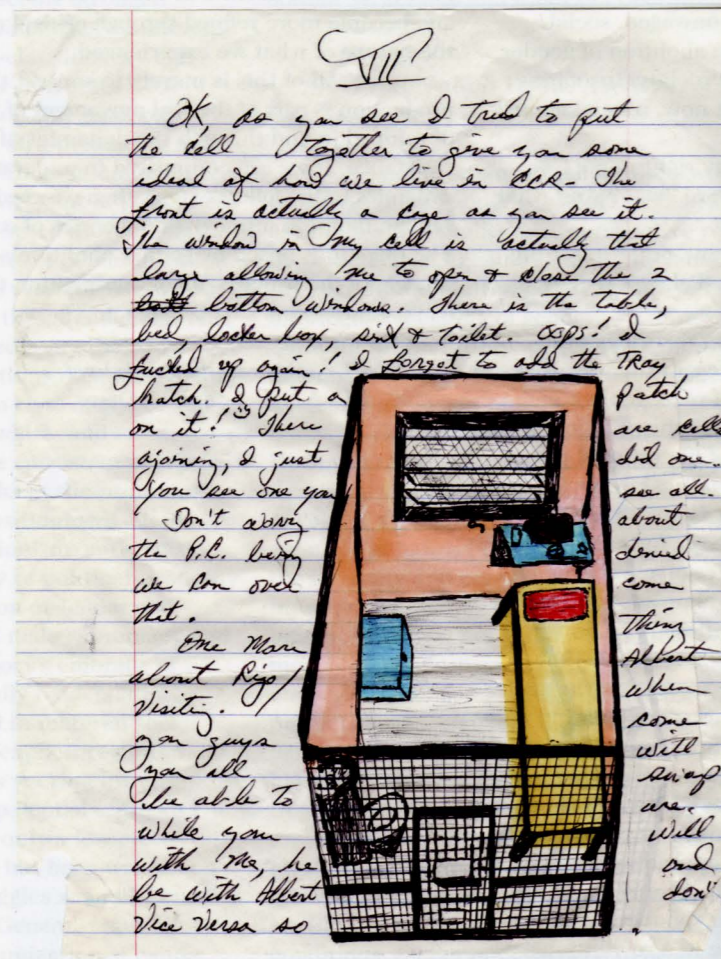 VII
OK, as you see I tried to put
the cell together to give you some
ideal of how we live in CCR- The
front is actually a cage as you see it.
The window in my cell is actually that
large allowing me to open & close the 2
bottom windows. There is the table,
bed, locker box, sink & toilet. OOps! I
fucked up again! I forgot to add the Tray
hatch. I put a patch
on it! There are cells
ajoining, I just did one.
You see one you see all.
Don't worry about
the P.C. being denied
we can over come
that.
One More thing
about Rigo/ Albert
Visiting. When
you guys come
you all will
be able to swap
while you are.
with me, he will
be with Albert and
Vice Versa so don't